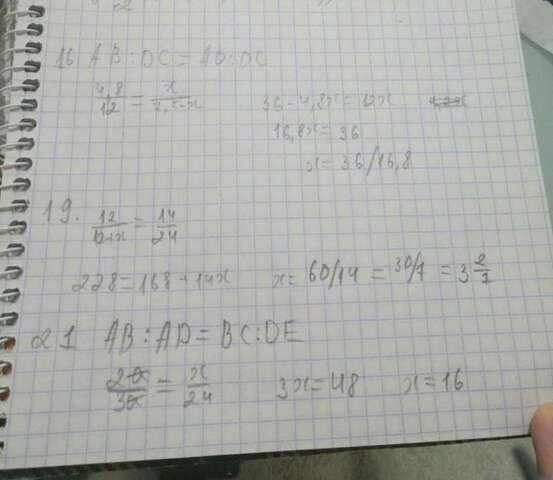 16 AB:DC = AD:DC
4,8/12 = x/7,5-x 36-4,8x=12x
16,8x=36
x=36/16,8
19. 12/12+x = 14/24
228=168+14x x= 60/14 = 30/7 = 3 2/7
21 AB:AD=BC:DE
2a/3a = x/24 3x=48 x=16